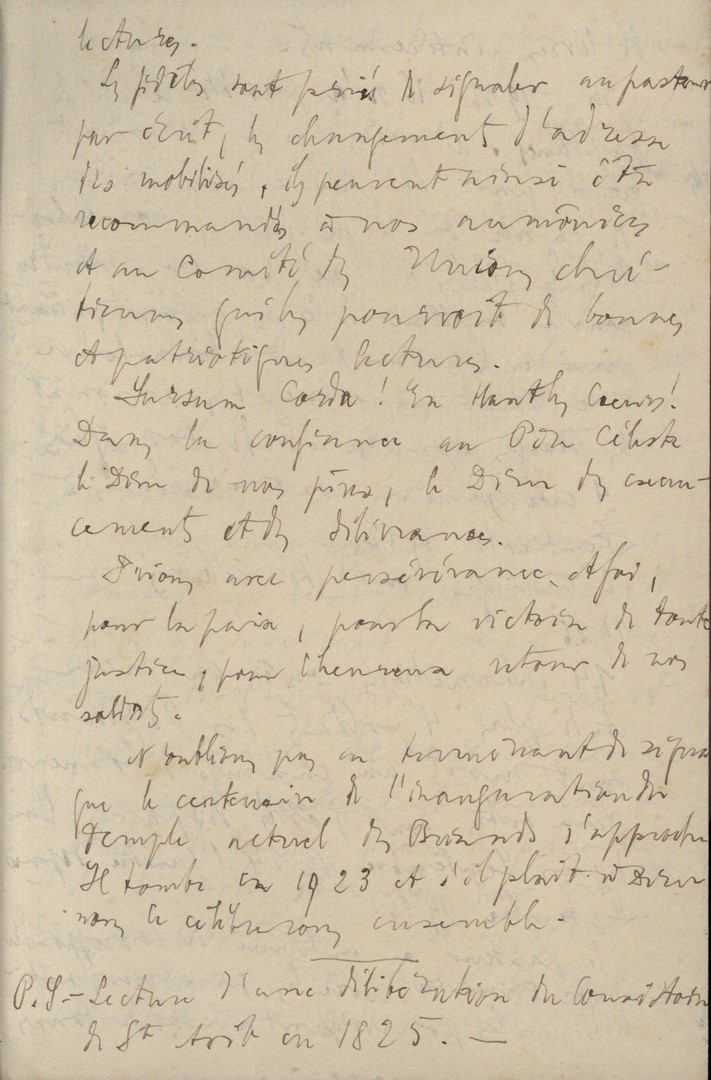 lectures.
Les fidèles sont priés de signaler au pasteur
par écrit, les changements d'adresse
des mobilisés, ils peuvent ainsi être
recommandés à nos aumôniers
et au Comité des Unions chré-
tiennes qui les pourvoit de bonnes
et patriotiques lectures.
Sursum Corda! En Haut les Coeurs!
Dans la confiance au Père Céleste
le Dieu de nos pères, le Dieu des exau-
cements et des délivrances.
Prions avec persévérance et foi,
pour la paix, pour la victoire de toute
justice, pour l'heureux retour de nos
soldats.
N'oublions pas en terminant de
que le centenaire de l'inauguration du
temple actuel des s'approche
Il tombe en 1923 et s'il plaît à Dieu
nous le célébrerons ensemble.
P.S.- Lecture d'une délibération du Consistoire
de St en 1825. —